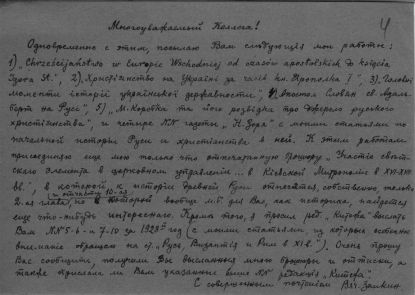 4
Многоуважаемый Коллега!
Одновременно с этим, посылаю Вам следующия мои работы:
1) „Chrześcijaństwo w Europie Wschodniej od czasów apostolskich do księcia
Igora St.", 2) „Християнство на Україні за часів кн. Ярополка I", 3) „Головні
моменти історії української державности", Апостол Словян св. Адаль-
берт на Руси", 5) „М. Коробка та його розвідка про джерело руського
християнства", и четыре NN газеты „Н. Зоря" с моими статьями по
начальной истории Руси и христианства в ней. К этим работам
присоединяю еще мою только что отпечатанную брошюру „Участие свет-
скаго элемента в церковном управлении ... в Киевской Митрополии в XVI-XVII
вв.", в которой к истории древней Руси относятся, собственно, только
2-ая глава, но в которой вообще Вы, как историк, найдете
еще что-нибудь интереснаго. Кроме того, я просил ред. „Китежа" выслать
Вам NN 5-6 и 7-10 за 1928й год (с моими статьями, из которых особенно
внимание обращаю на ст. „Русь, Византия и Рим в XI в."). Очень прошу
Вас сообщить, получили Вы высланныя мною брошюры и оттиски, а
также прислала ли Вам указанные выше NN редакция „Китежа".
С совершенным почтением Вяч. Заикин